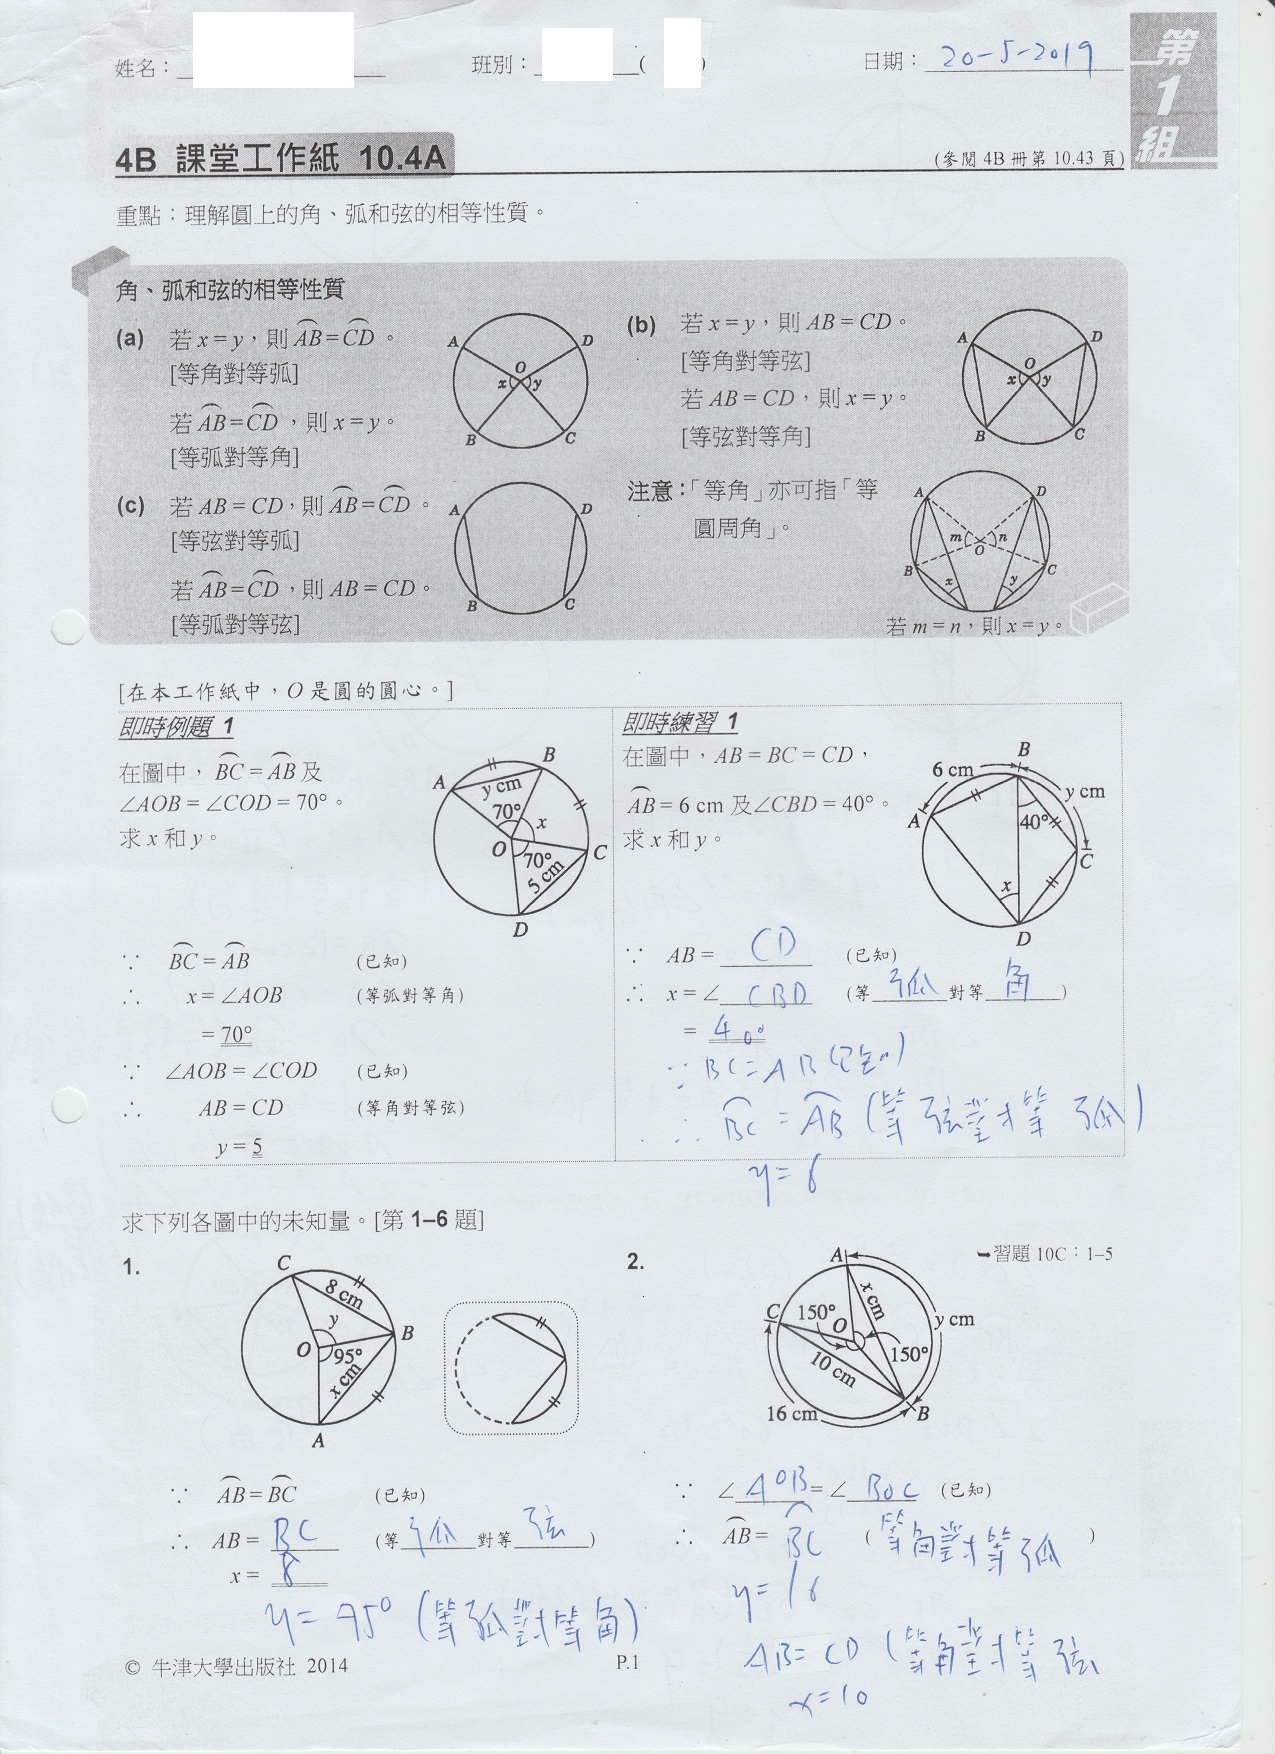 姓名：
班別： ( )
日期： 20-5-2019
第1組
4B 課堂工作紙 10.4A
(參閱 4B 冊第 10.43 頁)
重點：理解圓上的角、弧和弦的相等性質。
角、弧和弦的相等性質
(a) 若 x = y，則 A͡B = C͡D 。
[等角對等弧]
若 A͡B = C͡D ，則 x = y。
[等弧對等角]
A D O x y B C
(b) 若 x = y，則 AB = CD。
[等角對等弦]
若 AB = CD，則 x = y。
[等弦對等角]
A D O x y B C
(c) 若 AB = CD，則 A͡B = C͡D 。
[等弦對等弧]
若 A͡B = C͡D，則 AB = CD。
[等弧對等弦]
A D B C
注意：「等角」亦可指「等
圓周角」。
A D m n O B C x y
若 m = n，則 x = y。
[在本工作紙中，O 是圓的圓心。]
即時例題 1
在圖中， B͡C = A͡B 及
∠AOB = ∠COD = 70°。
求 x 和 y。
A B y cm 70° x O 70° C 5 cm D
∵ B͡C = A͡B (已知)
∴ x = ∠AOB (等弧對等角)
= 70°
∵ ∠AOB = ∠COD (已知)
∴ AB = CD (等角對等弦)
y = 5
即時練習 1
在圖中，AB = BC = CD，
A͡B = 6 cm 及∠CBD = 40°。
求 x 和 y。
B 6 cm y cm A 40° C x D
∵ AB = CD (已知)
∴ x = ∠ CBD (等 弧 對等 角 )
= 40°
∵ BC = AB (已知)
∴ B͡C = A͡B (等弦對等弧)
y = 6
求下列各圖中的未知量。[第 1–6 題]
➥習題 10C：1–5
1.
C 8 cm y B O 95° x cm A
∵ A͡B = B͡C (已知)
∴ AB = BC (等 弧 對等 弦 )
x = 8
y = 95° (等弧對等角)
2.
A x cm C 150° O y cm 150° 10 cm 16 cm B
∵ ∠ AOB = ∠ BOC (已知)
∴ A͡B = B͡C (等角對等弧 )
y = 16
AB = CD (等角對等弦
x = 10
© 牛津大學出版社 2014
P.1